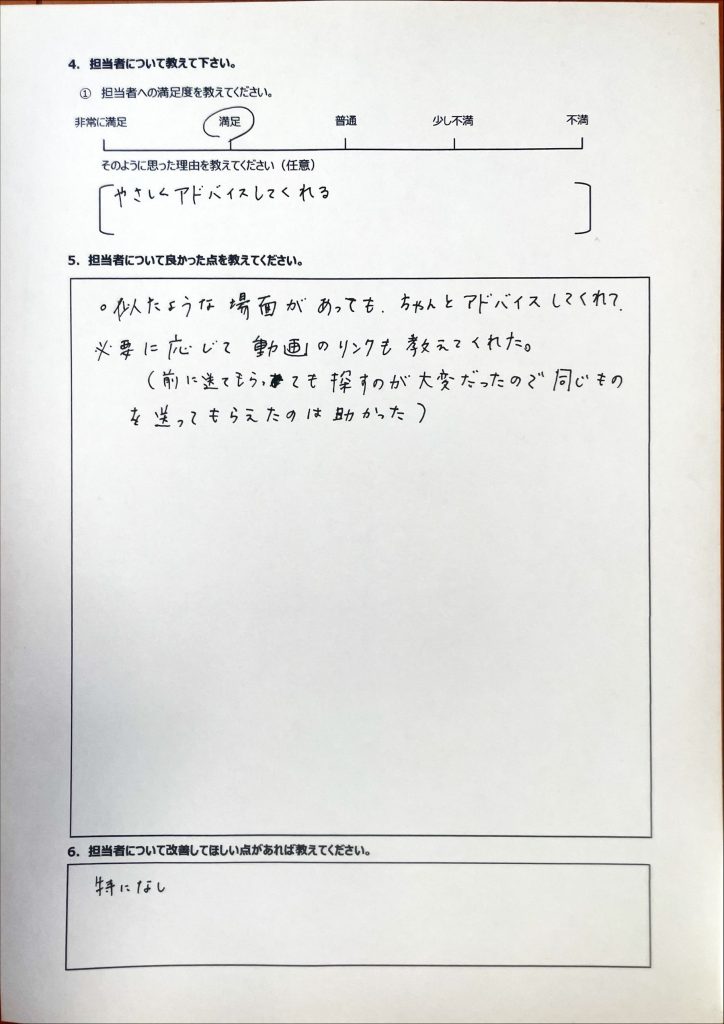 4. 担当者について教えて下さい。
① 担当者への満足度を教えてください。
非常に満足 満足 普通 少し不満 不満
そのように思った理由を教えてください（任意）
やさしくアドバイスしてくれる
5. 担当者について良かった点を教えてください。
○似たような場面があっても、ちゃんとアドバイスしてくれて、
必要に応じて動画のリンクも教えてくれた。
（前に送てもらっても探すのが大変だったので同じもの
を送ってもらえたのは助かった）
6. 担当者について改善してほしい点があれば教えてください。
特になし